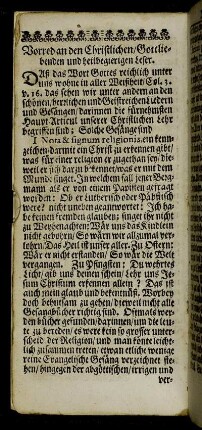 Vorred an den Christlichen / Gottlie-
benden und heilbegierigen Leser.
Daß das Wort Gottes reichlich unter
uns wohne in aller Weißheit Col. 3.
v. 16. das sehen wir unter andern an den
schönen, herrlichen und Geistreichen Liedern
und Gesängen / darinnen die fürnehmsten
Haupt Articul unserer Christlichen Lehr
begriffen sind: Solche Gesänge sind
I Nota & signum religionis, ein kenn-
zeichen / darmit ein Christ zu erkennen gibt /
was für einer religion er zugethan sey / die-
weil er sich darzu bekennet / was er mit dem
Munde singet. In welchem fall jener Berg-
mann als er von einem Papisten gefragt
worden: Ob er lutherisch oder Päbstisch
were? nicht uneben geantwortet: Ich ha-
be keinen fremden glauben; singet ihr nicht
zu Weyhenachten: Wär uns das Kindlein
nicht geborn / So wärn wir allzumal ver-
lohrn / Das Heil ist unser aller. Zu Ostern:
Wär er nicht erstanden / So wäre die Welt
vergangen. Zu Pfingsten: Du wehrtes
Licht / gib uns deinen schein / Lehr uns Je-
sum Christum erkennen allein? Das ist
auch mein glaub und bekentnüß. Worbey
doch behutsam zu gehen / dieweil nicht alle
Gesangbücher richtig sind. Oftmals wer-
den bücher gefunden / darinnen / um die leu-
te zu bereden / es were kein so grosser unter-
scheid der Religion / und man könte leicht-
lich zusammen treten, etwan etliche wenige
reine Evangelische Gesäng verzeichnet ste-
hen / hingegen der abgöttischen / irrigen und
ver-